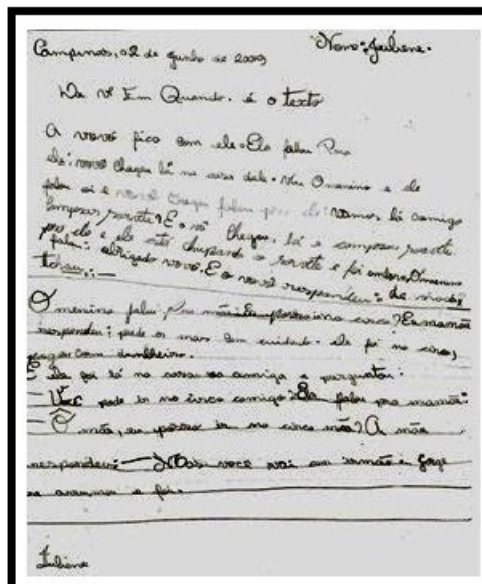 Campinas, 02 de junho de 2009 Nome: Juliene.
De vº Em Quando. é o texto
A vovó fico com ele. Ela falou Pra
ele: vovó chegou lá na casa dele. Viu O menino e ele
falou oi e vovó chegou falou pra ele: vamos lá comigo
comprar sorvete? E o vô chegou lá e comprou sorvete
pro ele e ele está chupando o sorvete e foi embora. O menino
falou: obrigado vovó. E o vovô respondeu: de nada,
tchau.
O menino falou Pra mãe: Eu posso ir no circo? E a mamãe
respondeu: pode ir mas tem cuidado. ele foi no circo,
pagou com dinheiro.
E ela foi lá na casa da amiga e perguntou:
— Você pode ir no circo comigo? Ela falou pra mamãe:
— Ô mãe, eu posso ir no circo mãe? A mãe
respondeu: — Mas você vai com irmão e
se arrumou e foi.
Juliene